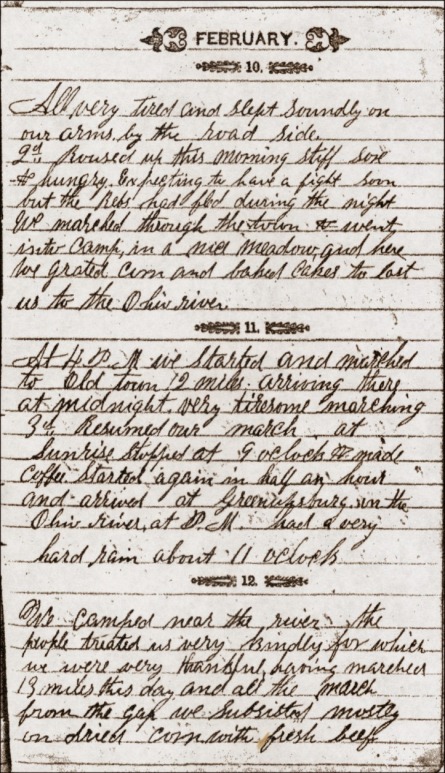 FEBRUARY.
10.
All very tired and slept soundly on
our arms by the road side.
2d Roused up this morning stiff sore
& hungry. Expecting to have a fight soon
but the Rebs had fled during the night
We marched through the town & went
into Camp, in a nice meadow, and here
we grated corn and baked Cakes to last
us to the Ohio river.
11.
At 4 P M we Started and marched
to Old town 12 miles. arriving there
at midnight, very tiresome marching
3d Resumed our march at
Sunrise Stopped at 9 oclock & made
Coffee Started again in half an hour
and arrived at Greenupsburg, on the
Ohio river, at P. M. had a very
hard rain about 11 oclock
12.
We Camped near the river the
people treated us very Kindly for which
we were very thankful, having marched
13 miles this day and all the march
from the Gap we Subsisted mostly
on dried Corn with fresh beef